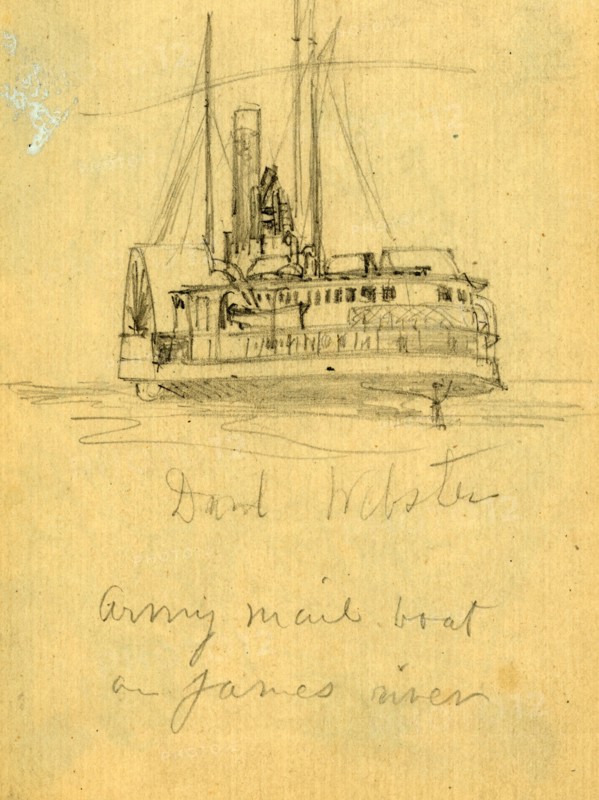 Danl Webster
Army mail boat
on James river